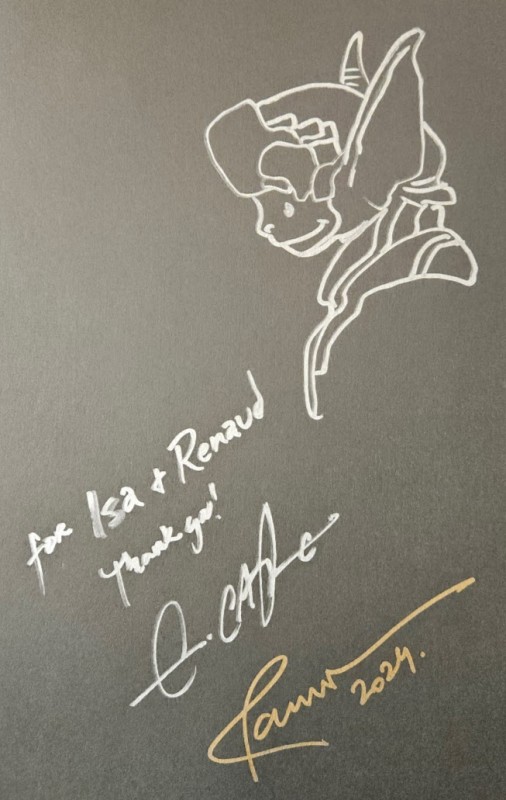 for Isa + Renaud
Thank you!
2024.